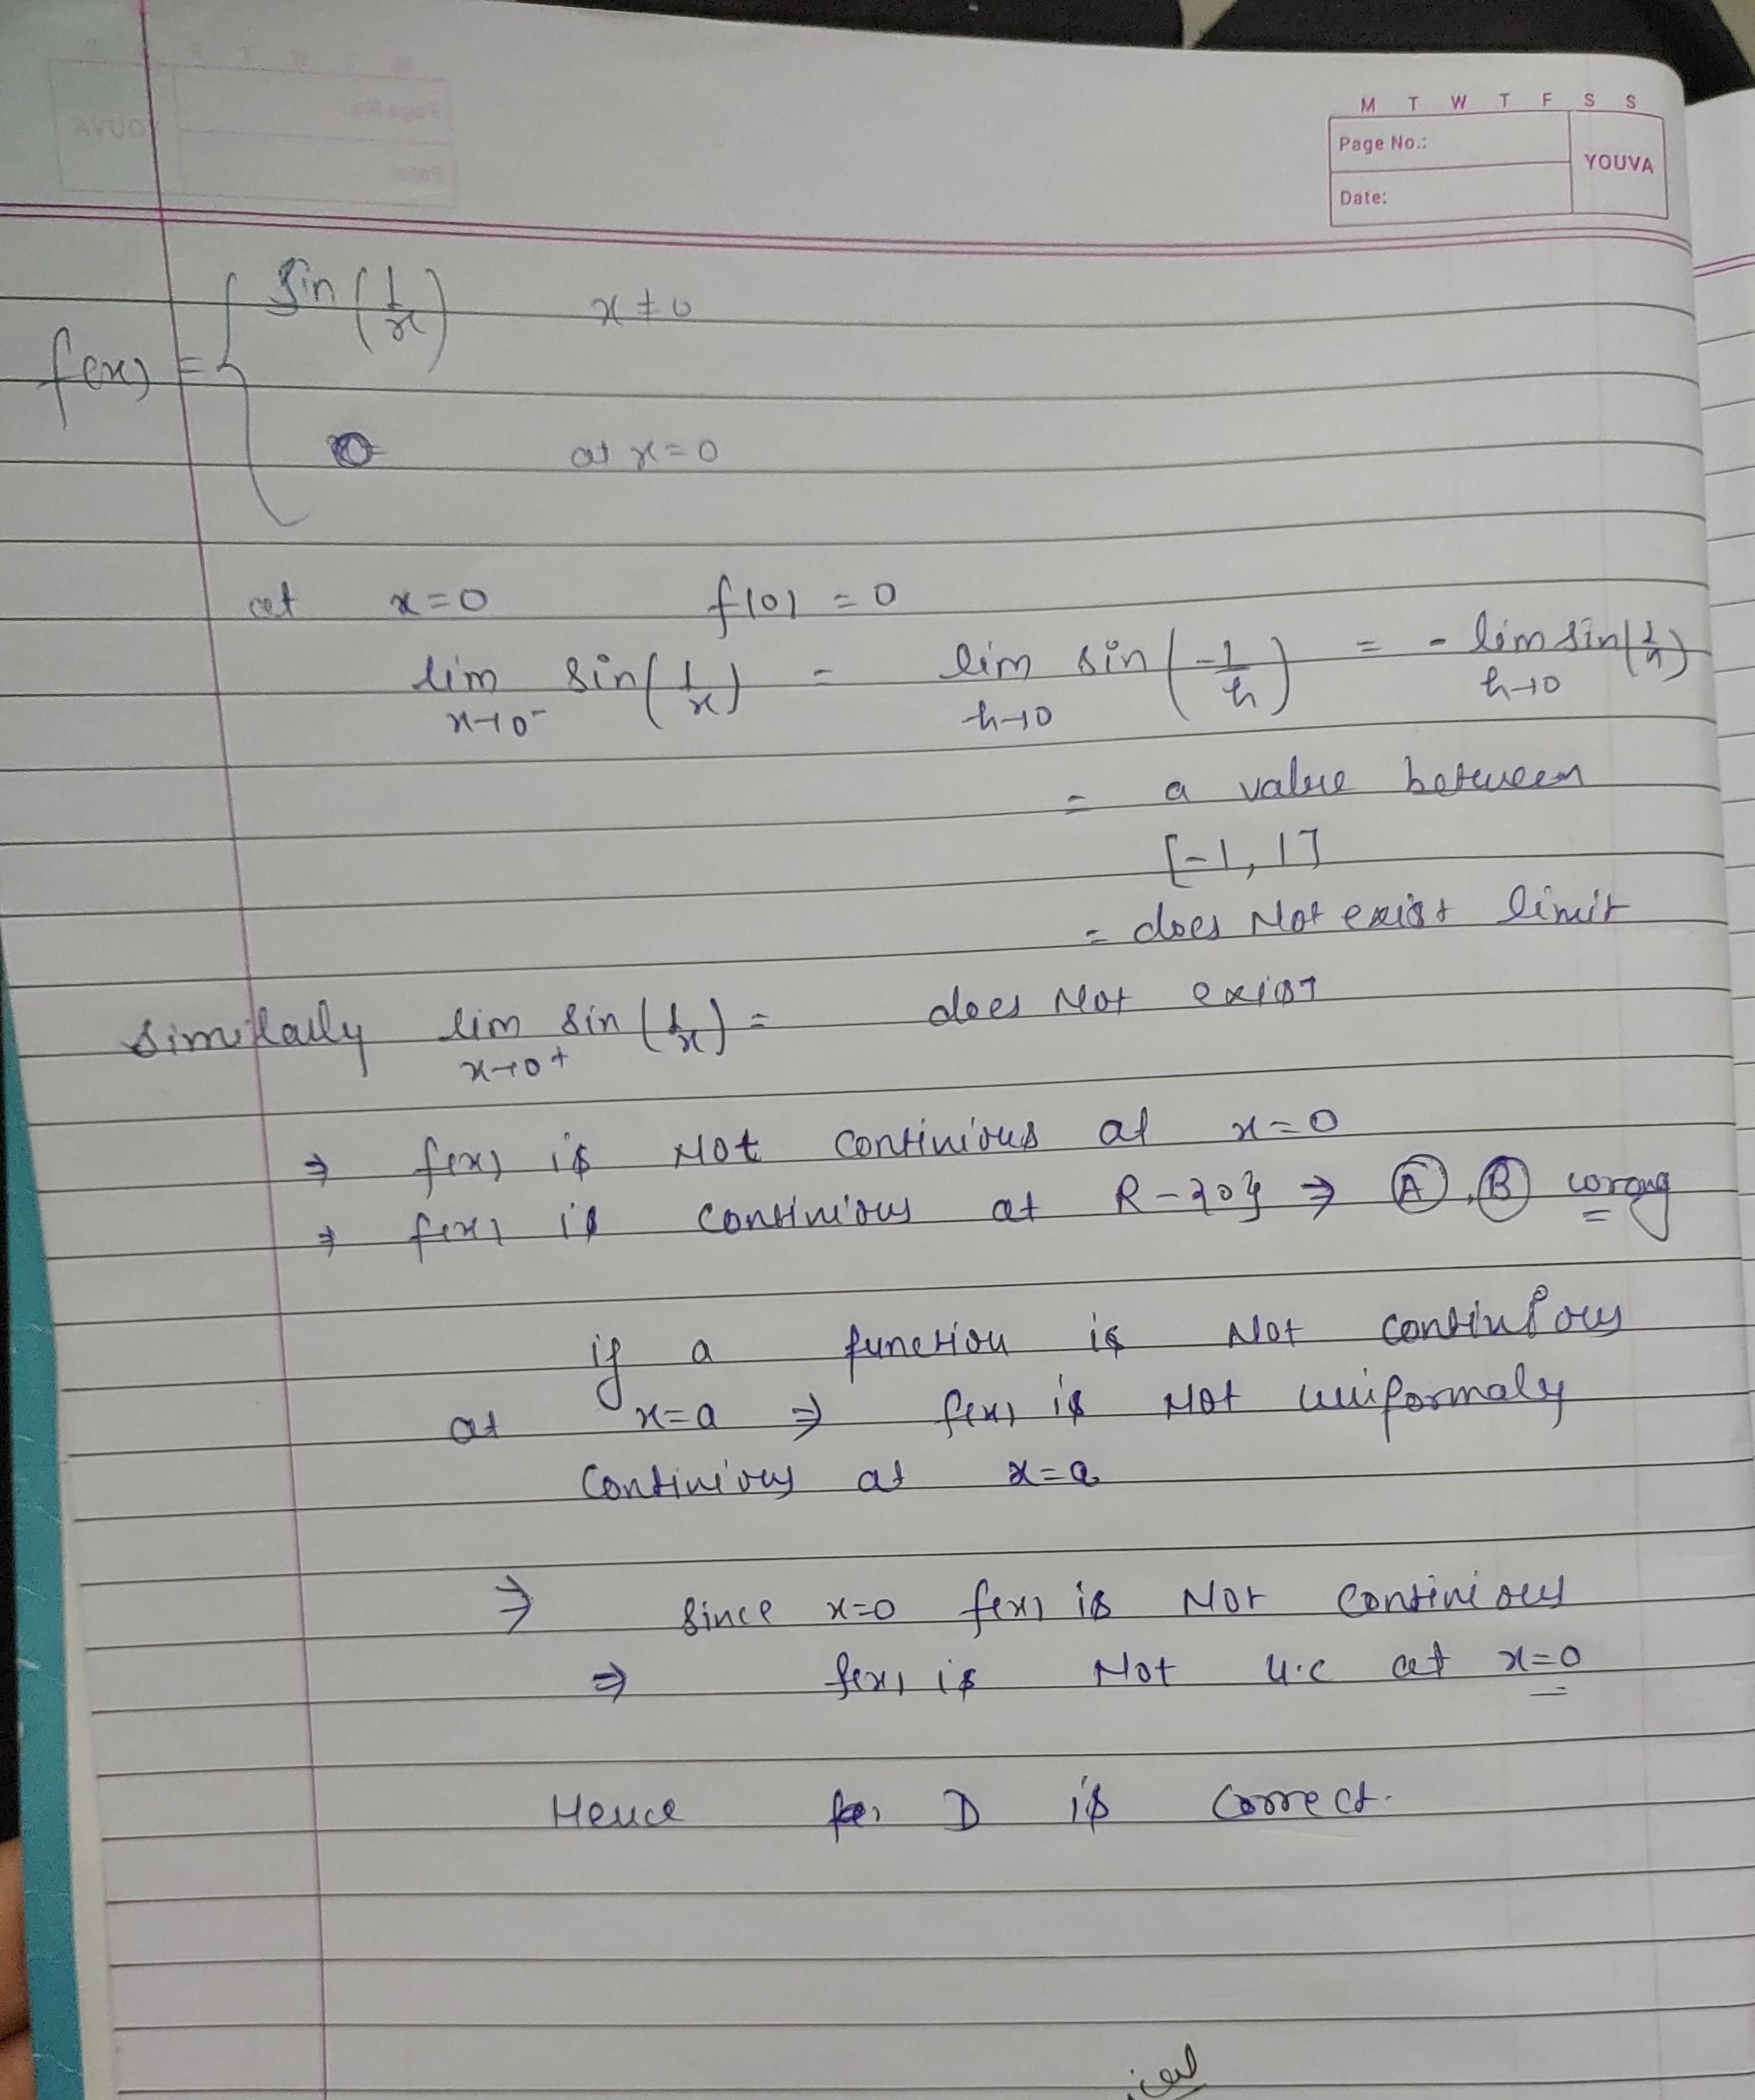 M T W T F S S
Page No.:
YOUVA
Date:
f(x) = { sin(1/x) x ≠ 0
0 at x=0
at x=0 f(0) = 0
lim x→0⁻ sin(1/x) = lim h→0 sin(-1/h) = - lim h→0 sin(1/h)
= a value between
[-1, 1]
= does Not exist limit
Similaily lim x→0+ sin(1/x) = does Not exist
⇒ f(x) is Not continious at x=0
⇒ f(x) is continious at R-{0} ⇒ (A), (B) worong
if a function is Not continious
at x=a ⇒ f(x) is Not uniformaly
continious at x=a
⇒ since x=0 f(x) is Not continious
⇒ f(x) is Not u.c at x=0
Hence D is correct.